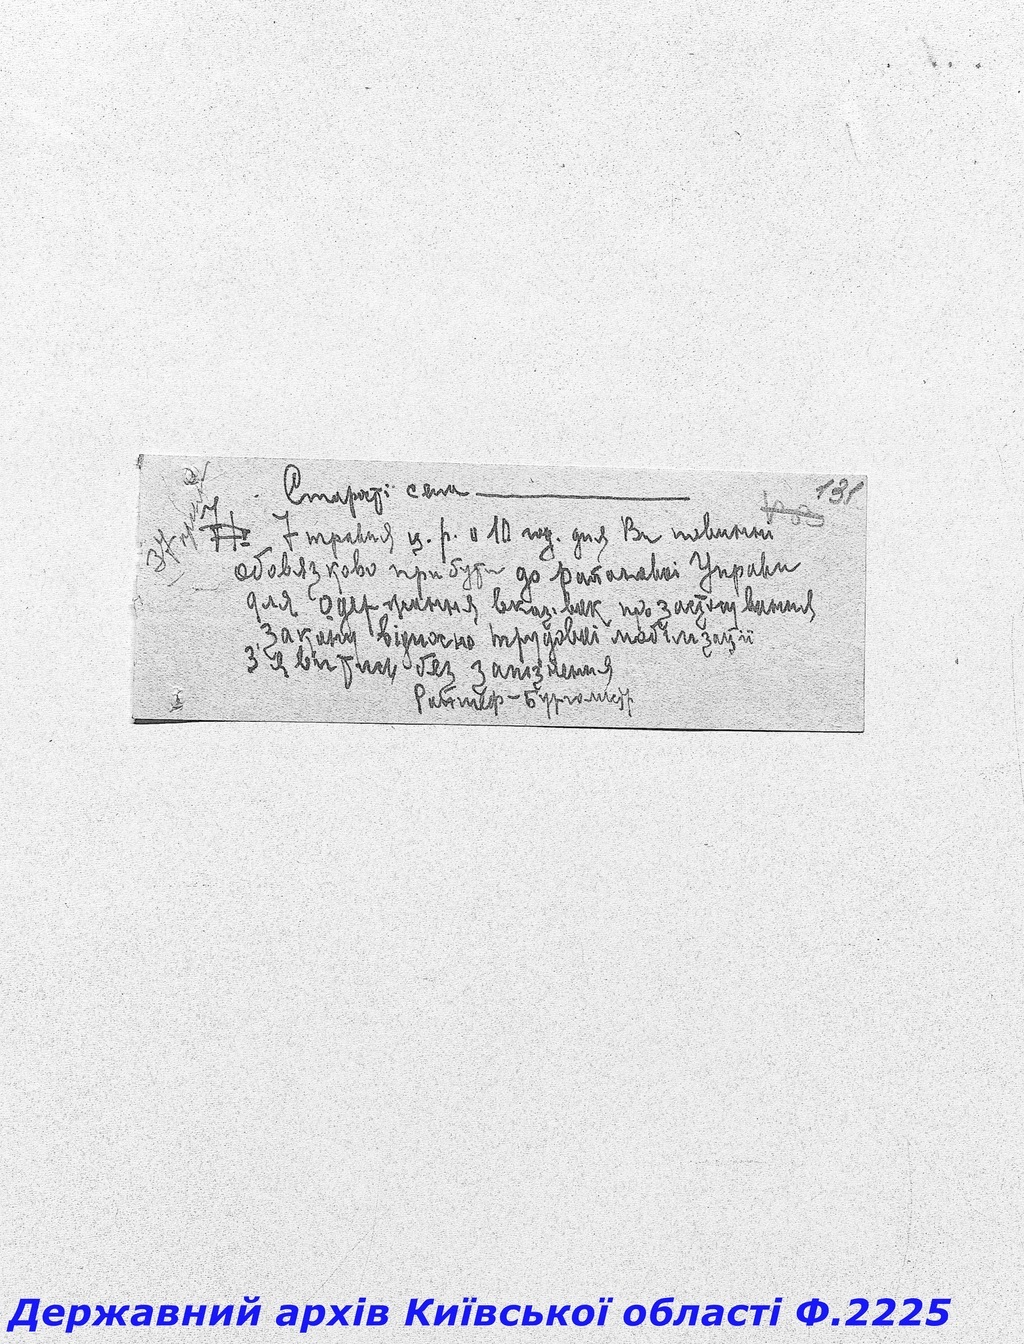 131
Старості села
7 травня ц. р. о 10 год. дня Ви повинні
обовязково прибути до районової Управи
для одержання вказівок про
закону відносно трудової мобілізації
З'явитись без запізнення
Бургомістр
Державний архів Київської області Ф.2225